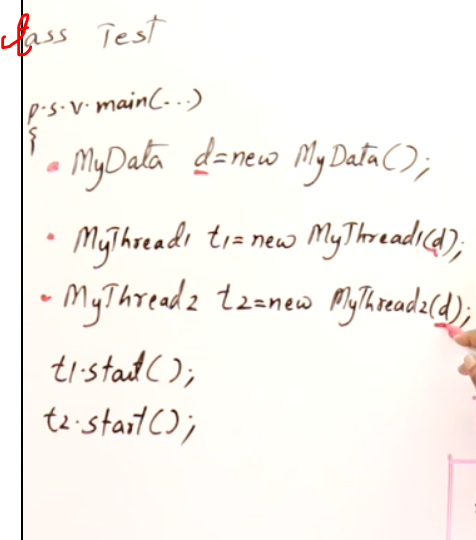 class Test
p.s.v.main(...)
{
MyData d=new MyData();
MyThread1 t1=new MyThread1(d);
MyThread2 t2=new MyThread2(d);
t1.start();
t2.start();